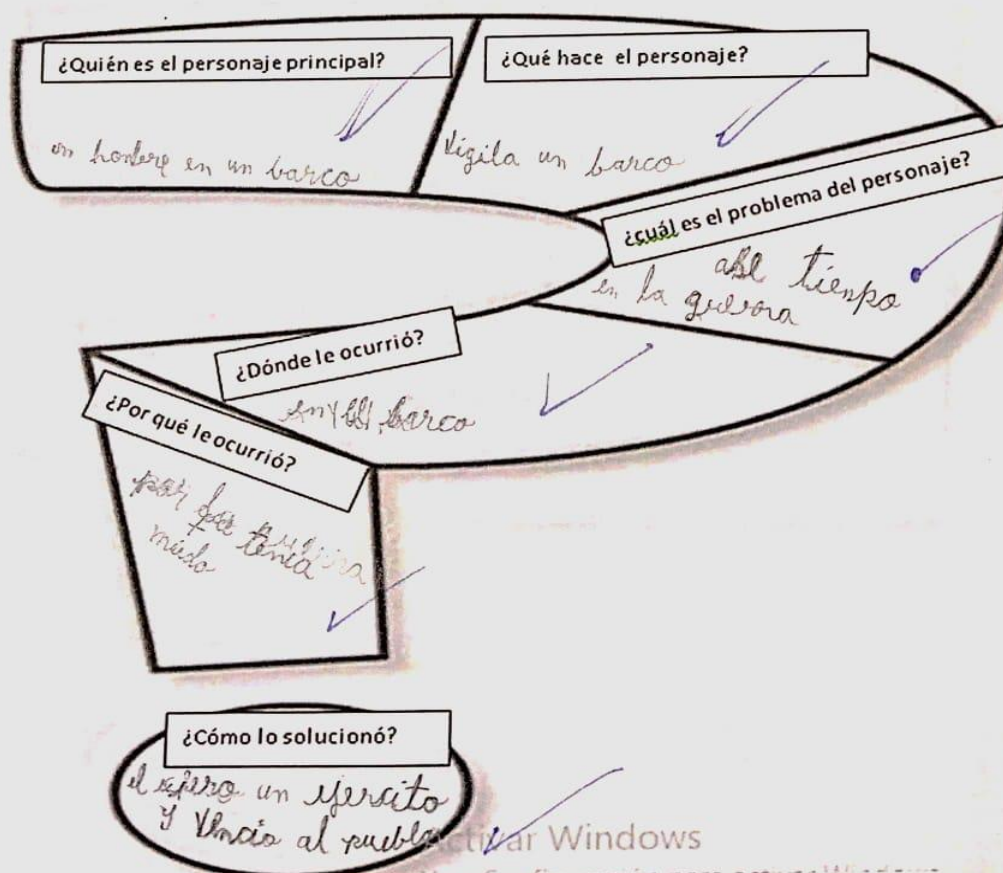 ¿Quién es el personaje principal?
un honbre en un barco
¿Qué hace el personaje?
Vigila un barco
¿cuál es el problema del personaje?
tienpo
en la
¿Dónde le ocurrió?
barco
¿Por qué le ocurrió?
por
tenia
miedo
¿Cómo lo solucionó?
el espero un ejercito
y Vencio al pueblo
Activar Windows